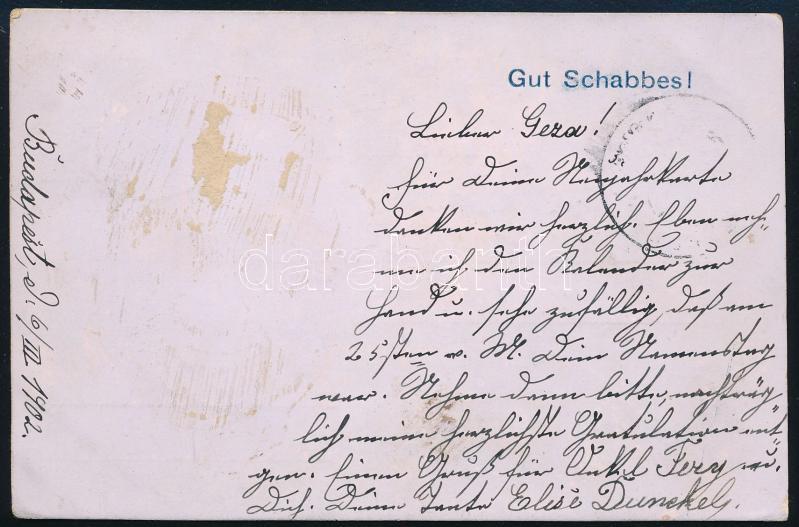 Gut Schabbes!
Lieber Geza!
für Deine Neujahrkarte
danken wir herzlich. Eben neh-
me ich den Kalender zur
Hand u. sehe zufällig, daß am
25sten v. M. Dein Namenstag
war. Nehme denn bitte, nachträg
lich meine herzlichste Gratulation ent-
gegen. Einen Gruß für Onkel Fery u.
Dich. Deine Tante Elise Dunckels.
Budapest, d. 6/III 1902.
darabanth